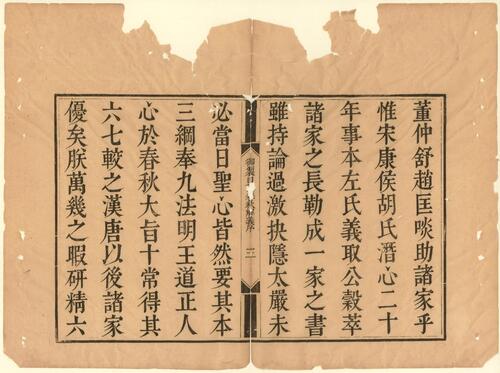 董仲舒趙匡啖助諸家乎
惟宋康侯胡氏潛心二十
年事本左氏義取公穀萃
諸家之長勒成一家之書
雖持論過激抉隱太嚴未
御製日解義序
必當日聖心皆然要其本
三綱奉九法明王道正人
心於春秋大旨十常得其
六七較之漢唐以後諸家
優矣朕萬幾之暇研精六